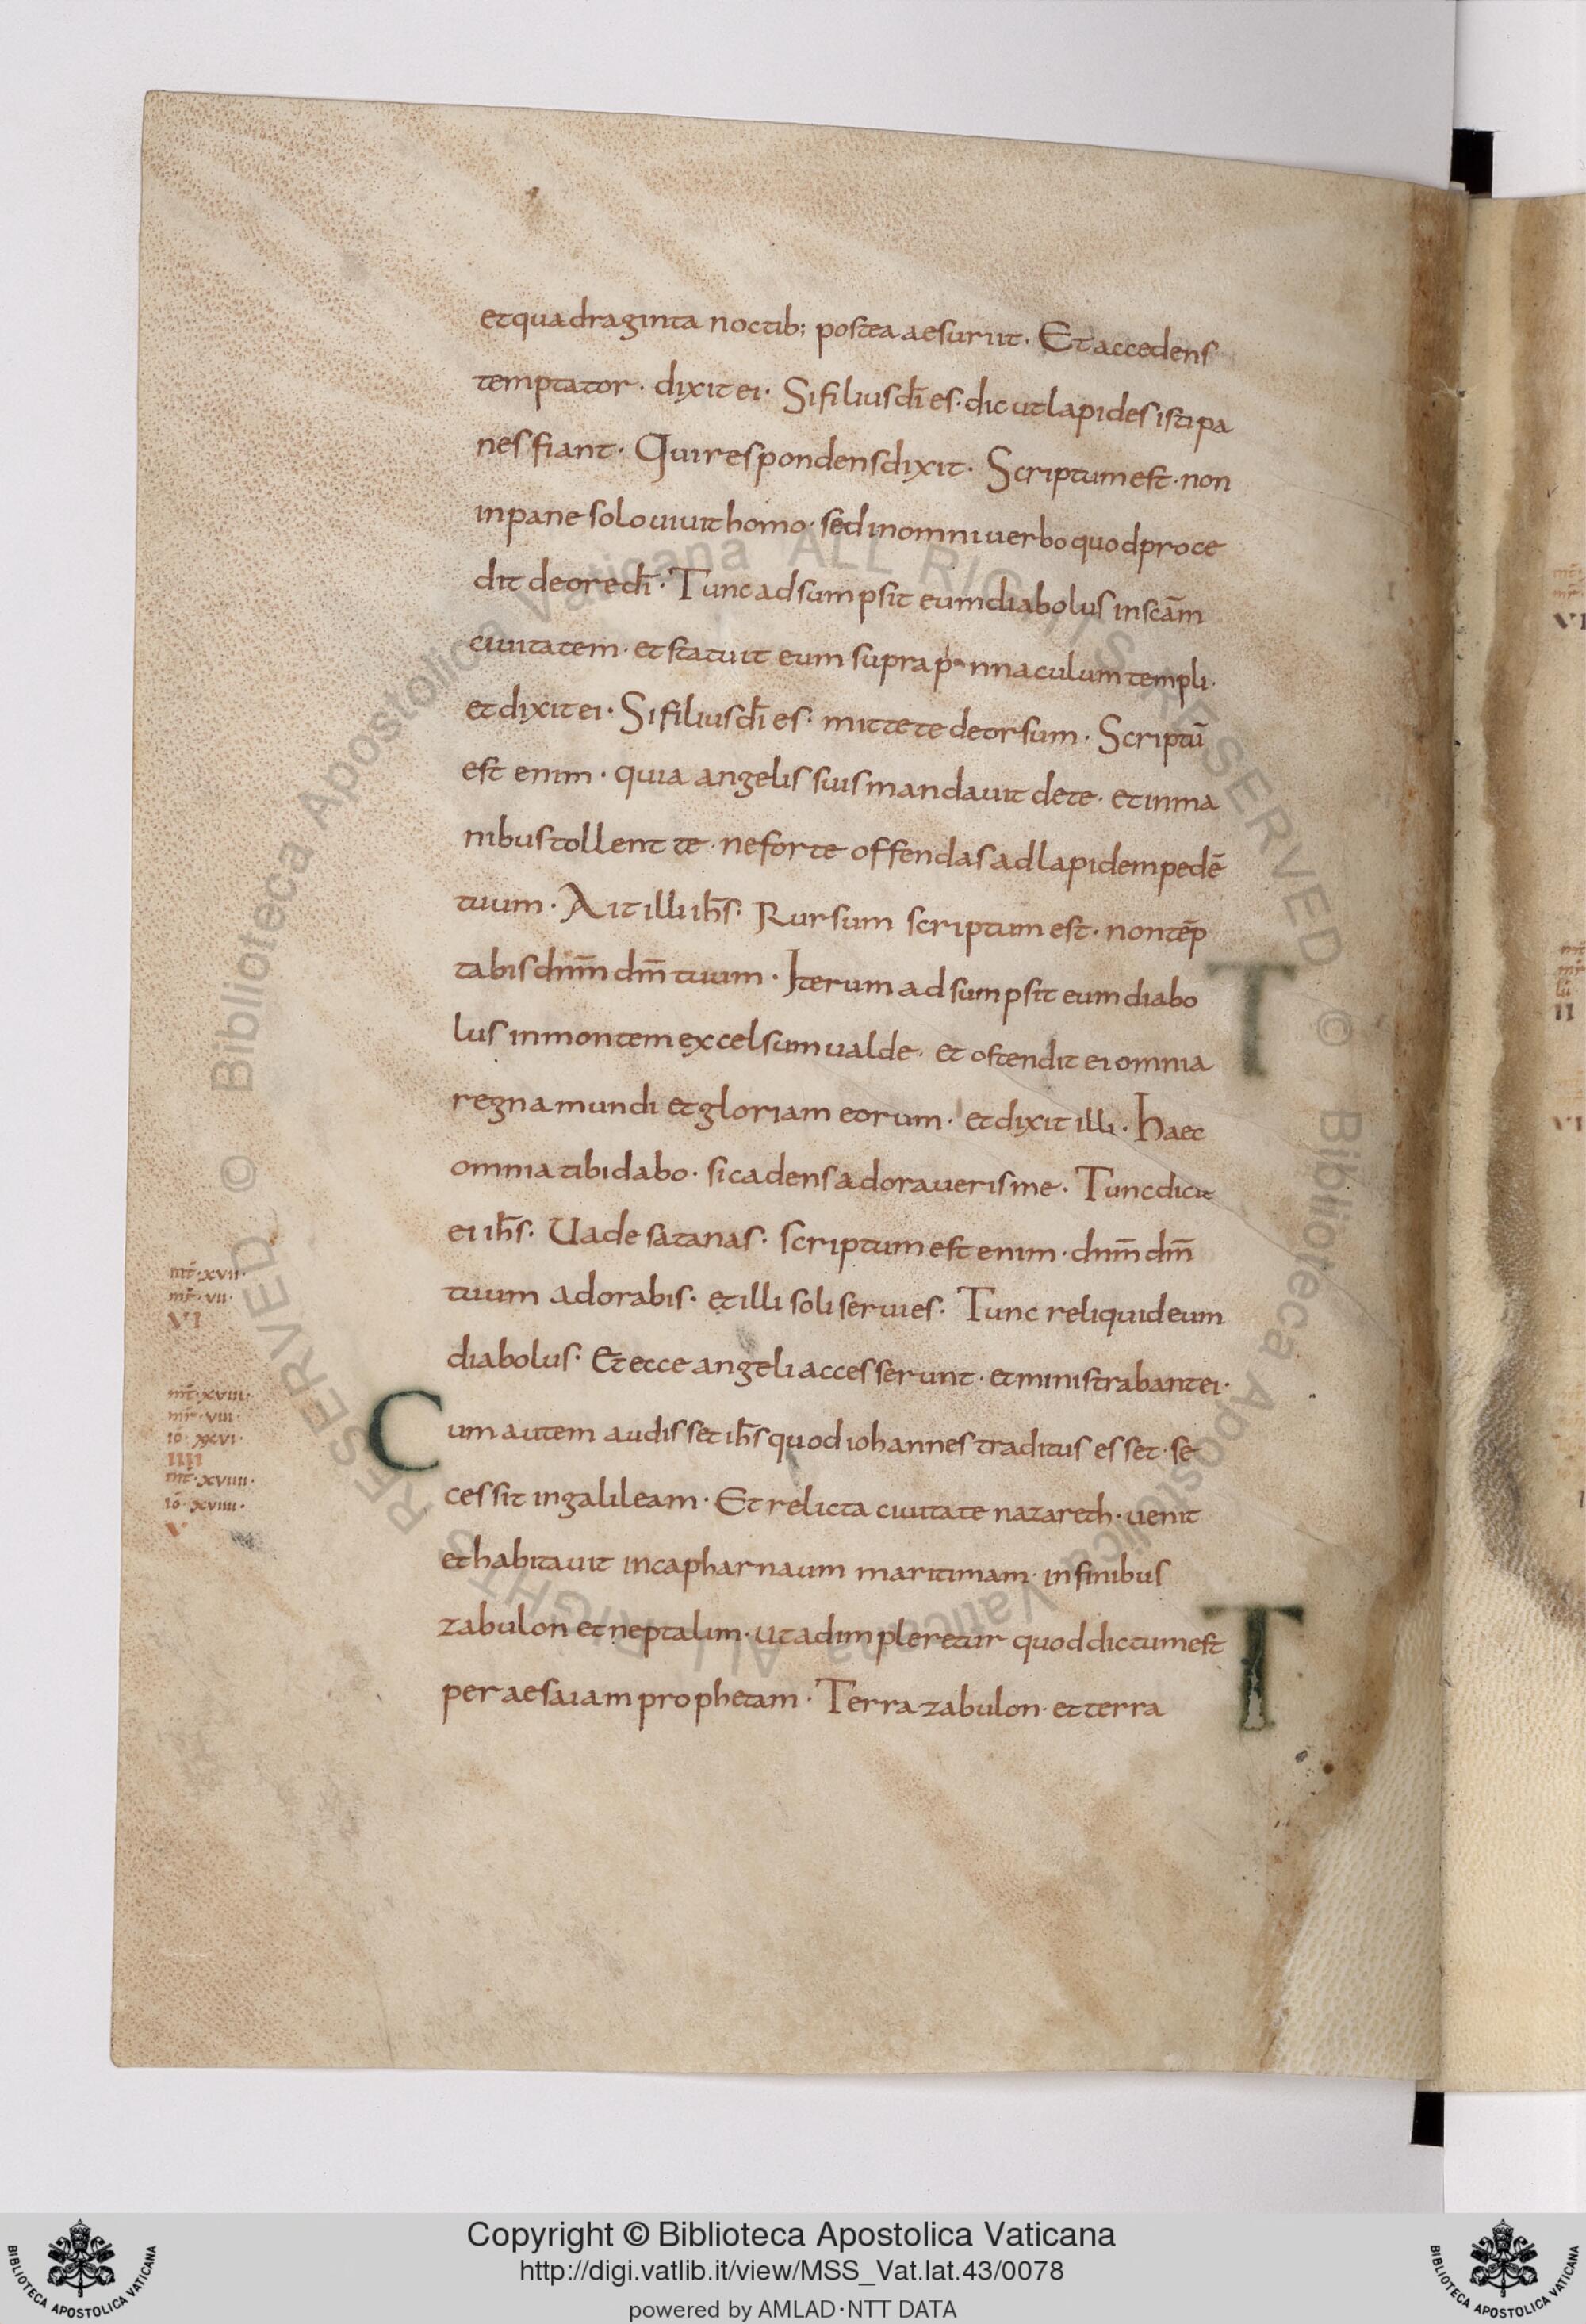 et quadraginta noctib; postea aesuriit · Et accedens
temptator · dixit ei · Si filius dī es · dic ut lapides isti pa
nes fiant · Qui respondens dixit · Scriptum est · non
in pane solo uiuit homo · sed in omni uerbo quod proce
dit de ore dī · Tunc adsumpsit eum diabolus in scām
ciuitatem · et statuit eum supra pinnaculum templi ·
et dixit ei · Si filius dī es · mitte te deorsum · Scriptū
est enim · quia angelis suis mandauit de te · et in ma
nibus tollent te · ne forte offendas ad lapidem pedē
tuum · Ait illi ihs̄ · Rursum scriptum est · non tēp
tabis dnm̄ dm̄ tuum · Iterum adsumpsit eum diabo
lus in montem excelsum ualde · et ostendit ei omnia
regna mundi et gloriam eorum · et dixit illi · Haec
omnia tibi dabo · si cadens adoraueris me · Tunc dicit
ei ihs̄ · Uade satanas · scriptum est enim · dnm̄ dm̄
tuum adorabis · et illi soli seruies · Tunc reliquid eum
diabolus · Et ecce angeli accesserunt · et ministrabant ei ·
Cum autem audisset ihs̄ quod iohannes traditus esset · se
cessit in galileam · Et relicta ciuitate nazareth · uenit
et habitauit in capharnaum maritimam · in finibus
zabulon et neptalim · ut adimpleretur quod dictum est
per aesaiam prophetam · Terra zabulon · et terra
mt̄ · xvii ·
mr̄ · vii ·
VI
mt̄ · xviii ·
mr̄ · viii ·
iō · xxvi ·
IIII
mt̄ · xviiii ·
iō · xviiii ·
V
T
T
© Biblioteca Apostolica Vaticana ALL RIGHTS RESERVED © Biblioteca Apostolica Vaticana ALL RIGHTS RESERVED
Copyright © Biblioteca Apostolica Vaticana
http://digi.vatlib.it/view/MSS_Vat.lat.43/0078
powered by AMLAD·NTT DATA
BIBLIOTECA APOSTOLICA VATICANA
BIBLIOTECA APOSTOLICA VATICANA